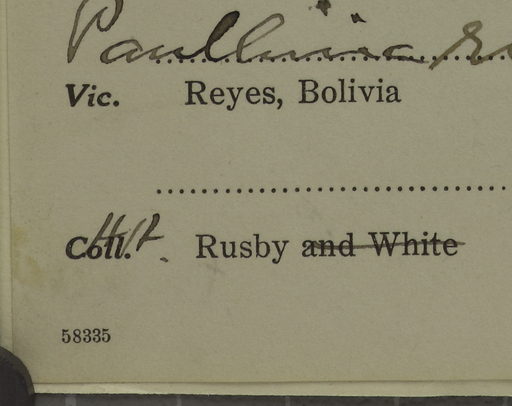 Paullinia
Vic. Reyes, Bolivia
Coll. Rusby and White
58335